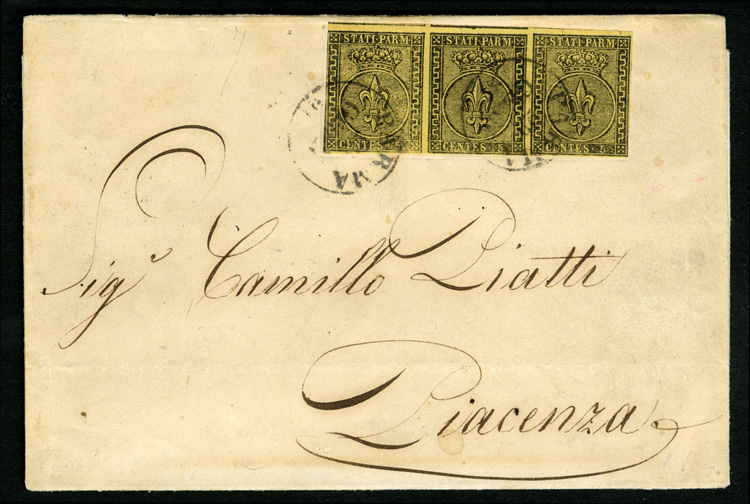 STATI PARM STATI PARM STATI PARM
CENTES. 5 CENTES. 5 CENTES. 5
PARMA
Sig.r Camillo Piatti
Piacenza